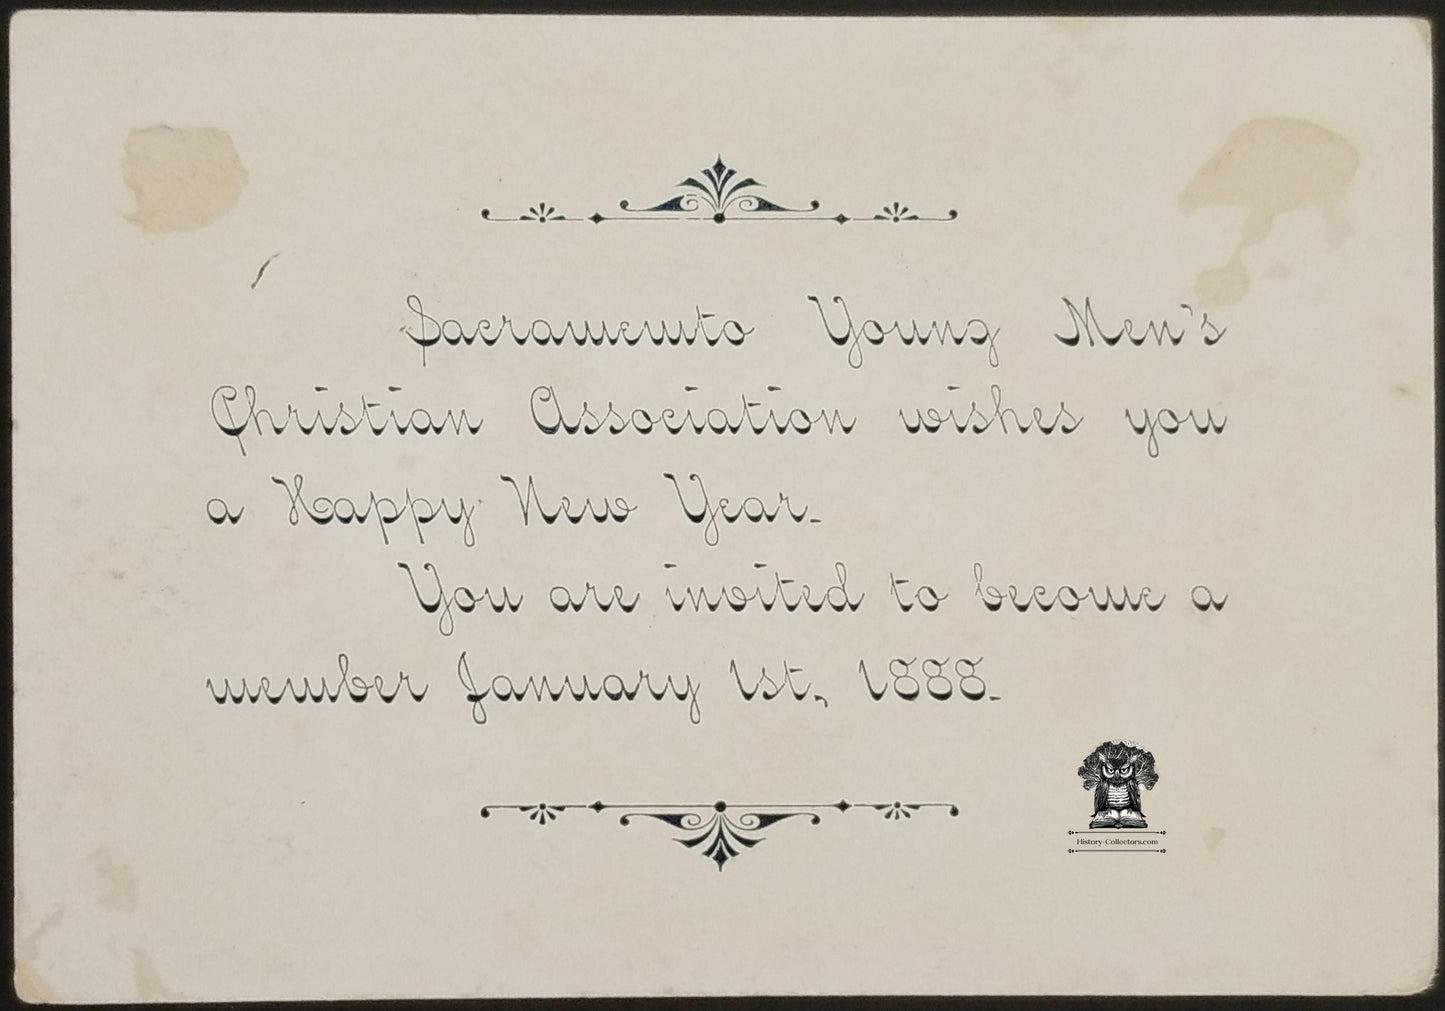 Sacramento Young Men's
Christian Association wishes you
a Happy New Year.
You are invited to become a
member January 1st, 1888.
History-Collectors.com